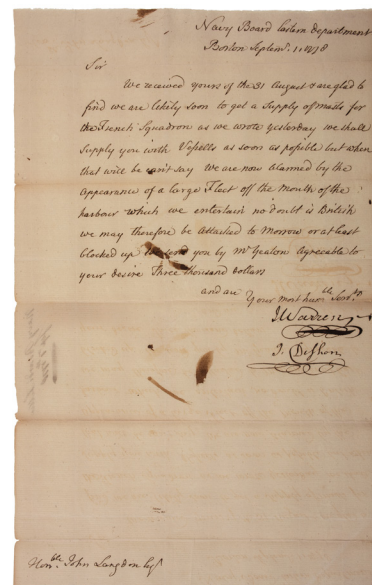 Navy Board Eastern Department
Boston Septemr. 1. 1778
Sir
We received yours of the 31 August & are glad to
find we are likely soon to get a Supply of masts for
the French Squadron as we wrote yesterday we shall
Supply you with Vessells as soon as possible but when
that will be can't say We are now alarmed by the
Appearance of a large Fleet off the Mouth of the
harbour which we entertain no doubt is British
we may therefore be Attacked to Morrow or at least
blocked up We send you by Mr Yeaton Agreeable to
your desire Three thousand dollars
and are
Your most humble Servts
J Warren
J. Deshon
Honble John Langdon Esqr